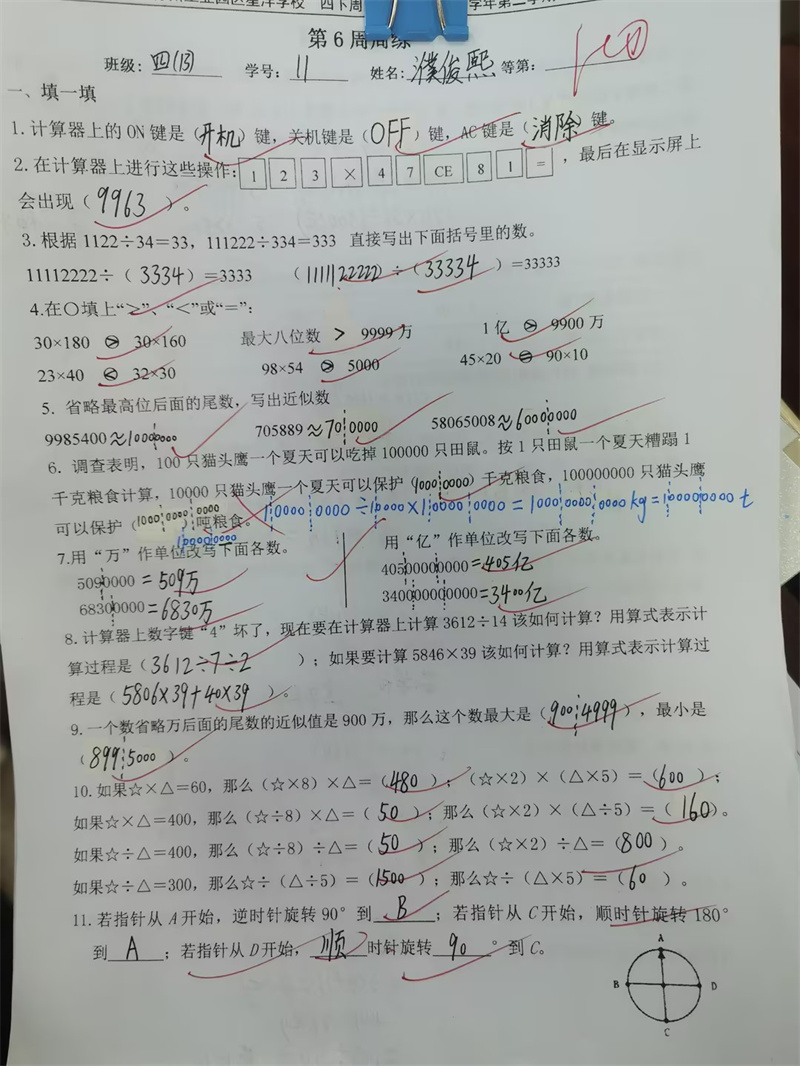 工业园区星洋学校 四下周 学年第二学期
第6周周练
班级:四(13) 学号:11 姓名:濮俊熙 等第:
一、填一填
1.计算器上的ON键是(开机)键,关机键是(OFF)键,AC键是(消除)键。
2.在计算器上进行这些操作: 1 2 3 × 4 7 CE 8 1 = ,最后在显示屏上
会出现(9963)。
3.根据1122÷34=33,111222÷334=333 直接写出下面括号里的数。
11112222÷(3334)=3333 (1111122222)÷(33334)=33333
4.在〇填上“>”、“<”或“=”:
30×180 > 30×160 最大八位数 > 9999万 1亿 > 9900万
23×40 < 32×30 98×54 > 5000 45×20 = 90×10
5. 省略最高位后面的尾数,写出近似数
9985400≈10000000 705889≈700000 58065008≈60000000
6. 调查表明,100只猫头鹰一个夏天可以吃掉100000只田鼠。按1只田鼠一个夏天糟蹋1
千克粮食计算,10000只猫头鹰一个夏天可以保护(10000000)千克粮食,100000000只猫头鹰
可以保护(100000000000)吨粮食。100000000÷10000×10000000=100000000000kg=100000000t
100000000
7.用“万”作单位改写下面各数。 用“亿”作单位改写下面各数。
5090000=509万 40500000000=405亿
68300000=6830万 340000000000=3400亿
8.计算器上数字键“4”坏了,现在要在计算器上计算3612÷14该如何计算?用算式表示计
算过程是(3612÷7÷2);如果要计算5846×39该如何计算?用算式表示计算过
程是(5806×39+40×39)。
9.一个数省略万后面的尾数的近似值是900万,那么这个数最大是(9004999),最小是
(8995000)。
10.如果☆×△=60,那么(☆×8)×△=(480);(☆×2)×(△×5)=(600);
如果☆×△=400,那么(☆÷8)×△=(50);那么(☆×2)×(△÷5)=(160)。
如果☆÷△=400,那么(☆÷8)÷△=(50);那么(☆×2)÷△=(800)。
如果☆÷△=300,那么☆÷(△÷5)=(1500);那么☆÷(△×5)=(60)。
11.若指针从A开始,逆时针旋转90°到B;若指针从C开始,顺时针旋转180°
到A;若指针从D开始,顺时针旋转90°到C。
A
B D
C